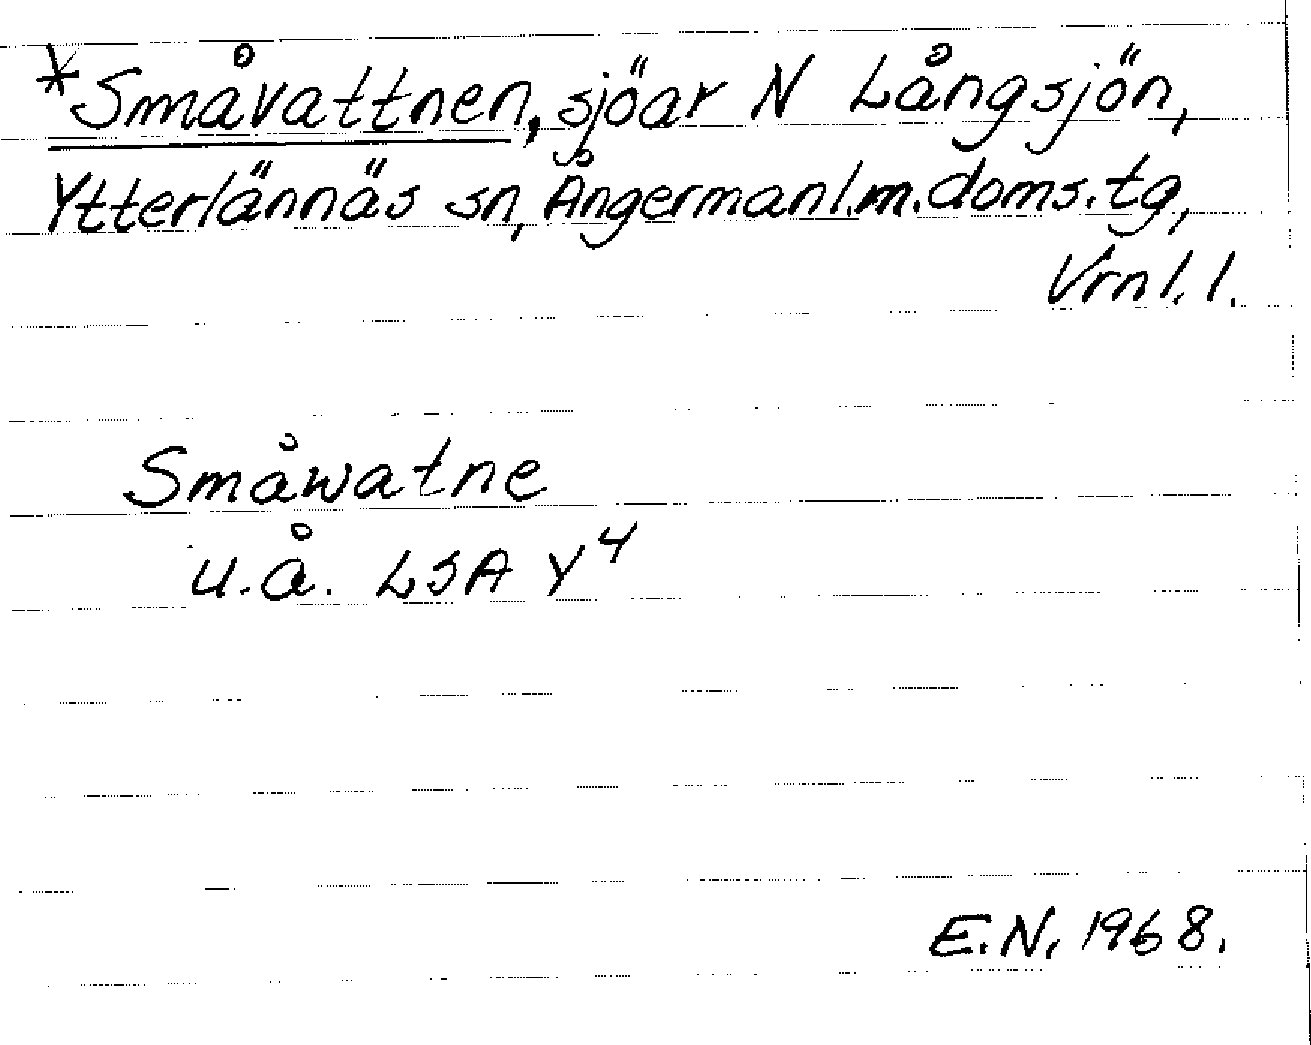 *Småvattnen, sjöar N Långsjön,
Ytterlännäs sn, Ångermanl.m.doms.tg,
Vrnl.l.
Småwatne
u.å. LSA Y⁴
E.N. 1968.